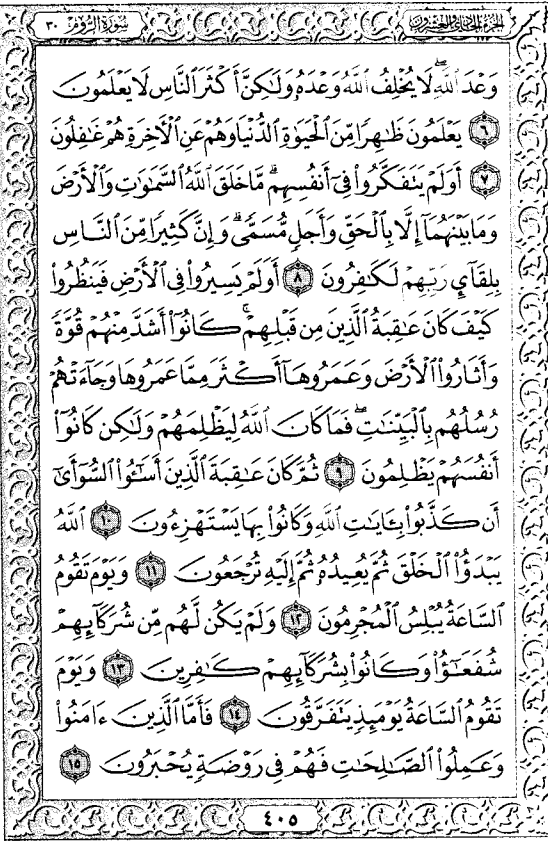 الجزء الحادي والعشرون
سورة الروم ٣٠
وَعْدَ ٱللَّهِۖ لَا يُخْلِفُ ٱللَّهُ وَعْدَهُۥ وَلَٰكِنَّ أَكْثَرَ ٱلنَّاسِ لَا يَعْلَمُونَ
٦ يَعْلَمُونَ ظَٰهِرًا مِّنَ ٱلْحَيَوٰةِ ٱلدُّنْيَا وَهُمْ عَنِ ٱلْأَخِرَةِ هُمْ غَٰفِلُونَ
٧ أَوَلَمْ يَتَفَكَّرُوا۟ فِىٓ أَنفُسِهِمۗ مَّا خَلَقَ ٱللَّهُ ٱلسَّمَٰوَٰتِ وَٱلْأَرْضَ
وَمَا بَيْنَهُمَآ إِلَّا بِٱلْحَقِّ وَأَجَلٍ مُّسَمًّىۗ وَإِنَّ كَثِيرًا مِّنَ ٱلنَّاسِ
بِلِقَآئِ رَبِّهِمْ لَكَٰفِرُونَ ٨ أَوَلَمْ يَسِيرُوا۟ فِى ٱلْأَرْضِ فَيَنظُرُوا۟
كَيْفَ كَانَ عَٰقِبَةُ ٱلَّذِينَ مِن قَبْلِهِمْۚ كَانُوٓا۟ أَشَدَّ مِنْهُمْ قُوَّةً
وَأَثَارُوا۟ ٱلْأَرْضَ وَعَمَرُوهَآ أَكْثَرَ مِمَّا عَمَرُوهَا وَجَآءَتْهُمْ
رُسُلُهُم بِٱلْبَيِّنَٰتِۖ فَمَا كَانَ ٱللَّهُ لِيَظْلِمَهُمْ وَلَٰكِن كَانُوٓا۟
أَنفُسَهُمْ يَظْلِمُونَ ٩ ثُمَّ كَانَ عَٰقِبَةَ ٱلَّذِينَ أَسَٰٓـُٔوا۟ ٱلسُّوٓأَىٰٓ
أَن كَذَّبُوا۟ بِـَٔايَٰتِ ٱللَّهِ وَكَانُوا۟ بِهَا يَسْتَهْزِءُونَ ١٠ ٱللَّهُ
يَبْدَؤُا۟ ٱلْخَلْقَ ثُمَّ يُعِيدُهُۥ ثُمَّ إِلَيْهِ تُرْجَعُونَ ١١ وَيَوْمَ تَقُومُ
ٱلسَّاعَةُ يُبْلِسُ ٱلْمُجْرِمُونَ ١٢ وَلَمْ يَكُن لَّهُم مِّن شُرَكَآئِهِمْ
شُفَعَٰٓؤُا۟ وَكَانُوا۟ بِشُرَكَآئِهِمْ كَٰفِرِينَ ١٣ وَيَوْمَ
تَقُومُ ٱلسَّاعَةُ يَوْمَئِذٍ يَتَفَرَّقُونَ ١٤ فَأَمَّا ٱلَّذِينَ ءَامَنُوا۟
وَعَمِلُوا۟ ٱلصَّٰلِحَٰتِ فَهُمْ فِى رَوْضَةٍ يُحْبَرُونَ ١٥
٤٠٥